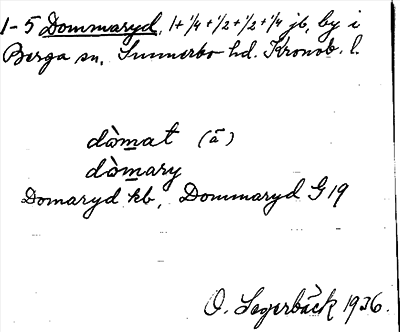 1-5 Dommaryd, 1+1/4+1/2+1/2+1/4 jb, by i
Berga sn, Sunnerbo hd. Kronob. l.
dòmat (ā)
dòmary
Domaryd kb, Dommaryd G 19
O. Segerbäck 1936.